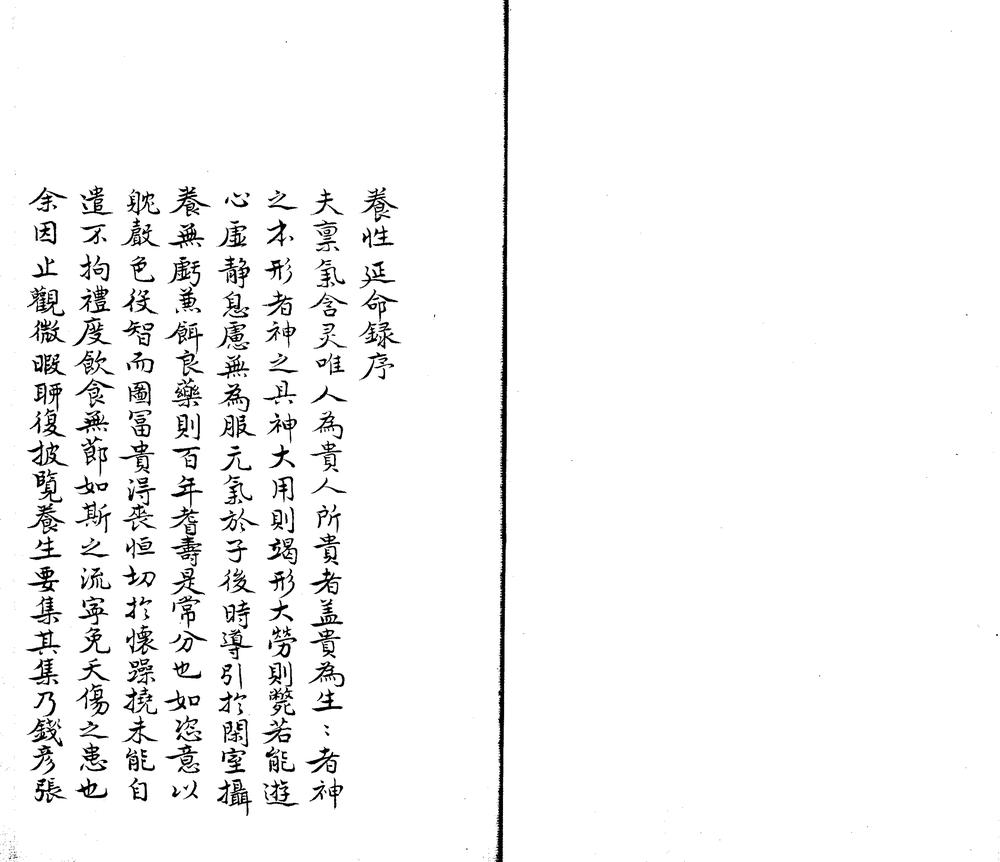 養性延命録序
夫禀氣含灵唯人為貴人所貴者盖貴為生〻者神
之本形者神之具神大用則竭形大勞則斃若能遊
心虛静息慮無為服元氣於子後時導引於閑室攝
養無虧兼餌良藥則百年耆壽是常分也如恣意以
躭聲色役智而圖冨貴淂喪恒切扵懷躁撓未能自
遣不拘禮度飲食無節如斯之流寜免夭傷之患也
余因止觀微暇聊復披覧養生要集其集乃錢彦張